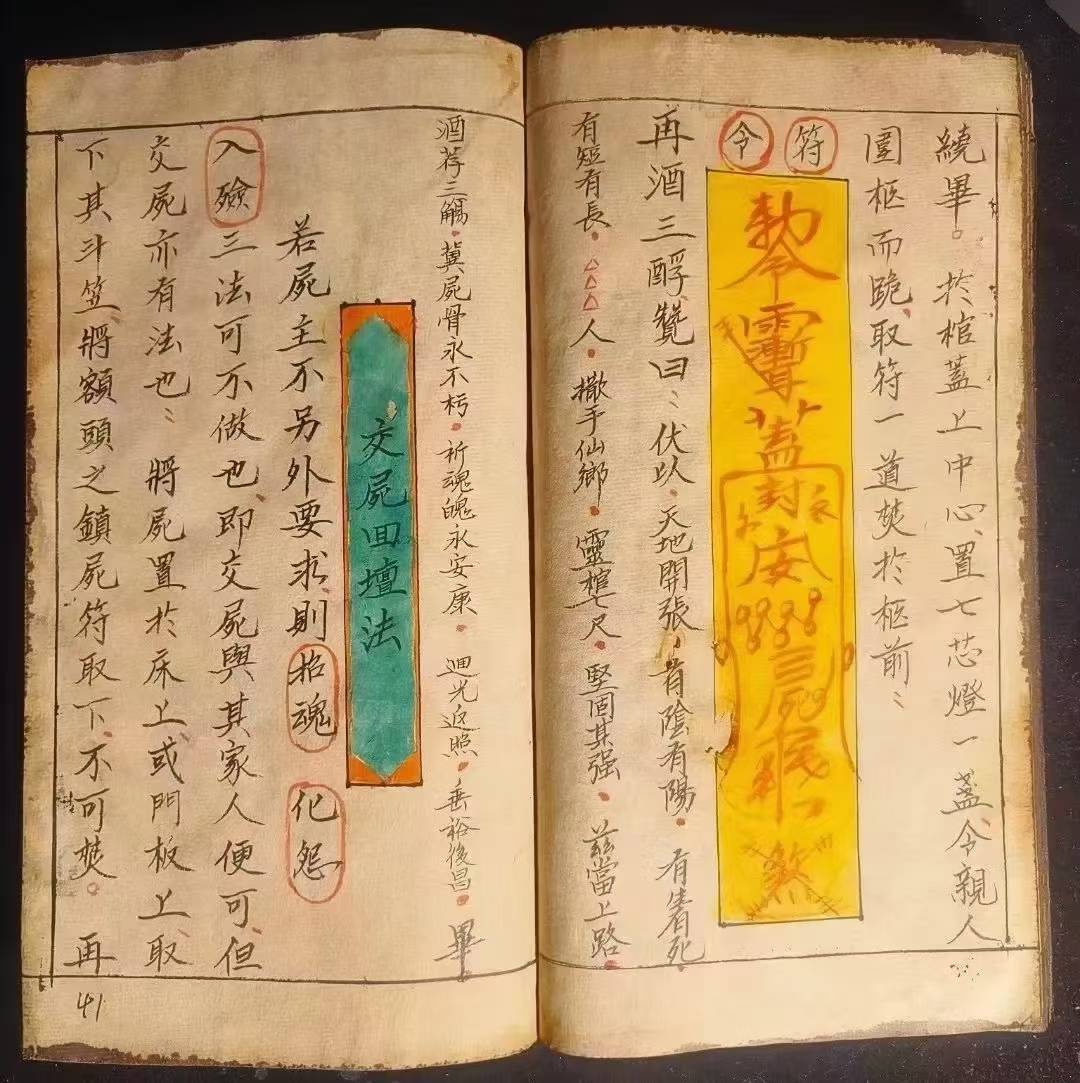 繞畢。於棺蓋上中心、置七芯燈一盞、令親人
圍柩而跪、取符一道焚於柩前:
符令
勅令
蓋封安
再酒三酹、贊曰:伏以、天地開張、有陰有陽、有生有死、
有短有長、△△△人、撒手仙鄉、靈棺七尺、堅固其强、茲當上路、
酒荐三觴、冀屍骨永不朽、祈魂魄永安康、迴光返照、垂裕後昌、畢
交屍回壇法
若屍主不另外要求、則招魂 化怨
入殮三法可不做也、即交屍與其家人便可、但
交屍亦有法也:將屍置於床上、或門板上、取
下其斗笠、將額頭之鎮屍符取下、不可焚。再
41